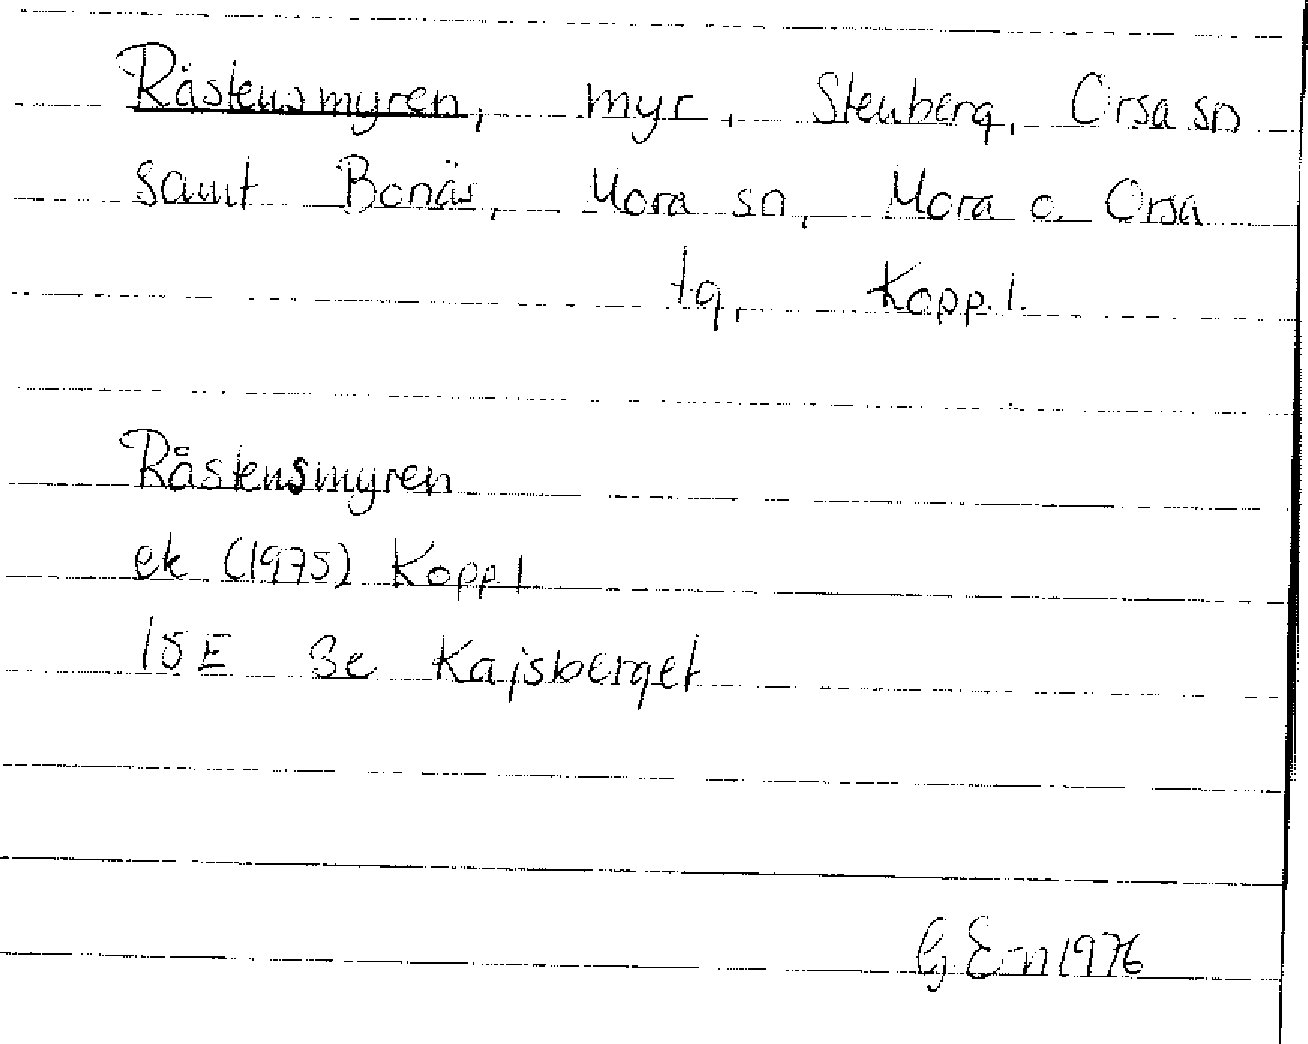 Råstensmyren, myr, Stenberg, Orsa sn
samt Bonäs, Mora sn, Mora o Orsa
tg, Kopp.l.
Råstensmyren
ek (1975) Kopp l
15E 3e Kajsberget
G E-n 1976